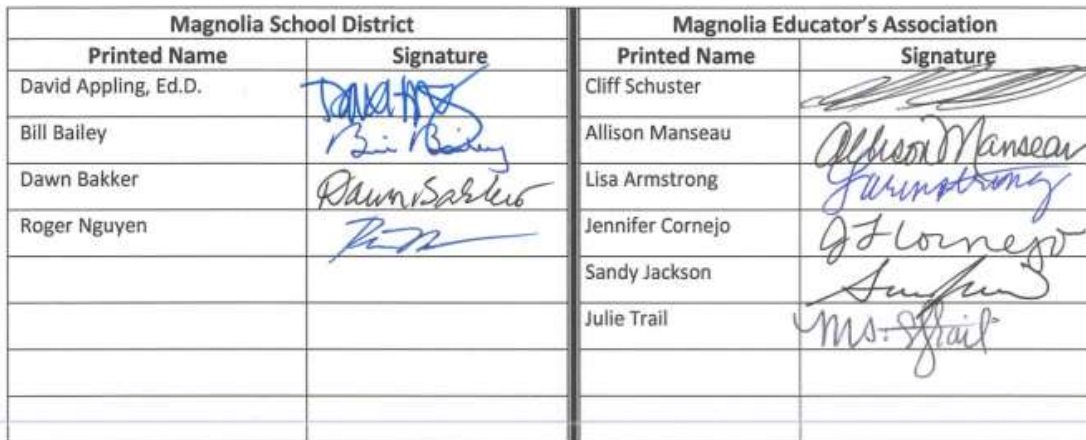 Magnolia School District Magnolia Educator's Association
Printed Name Signature Printed Name Signature
David Appling, Ed.D. Cliff Schuster
Bill Bailey Bill Bailey Allison Manseau Allison Manseau
Dawn Bakker Dawn Bakker Lisa Armstrong LArmstrong
Roger Nguyen Jennifer Cornejo JLCornejo
Sandy Jackson
Julie Trail Ms. Trail